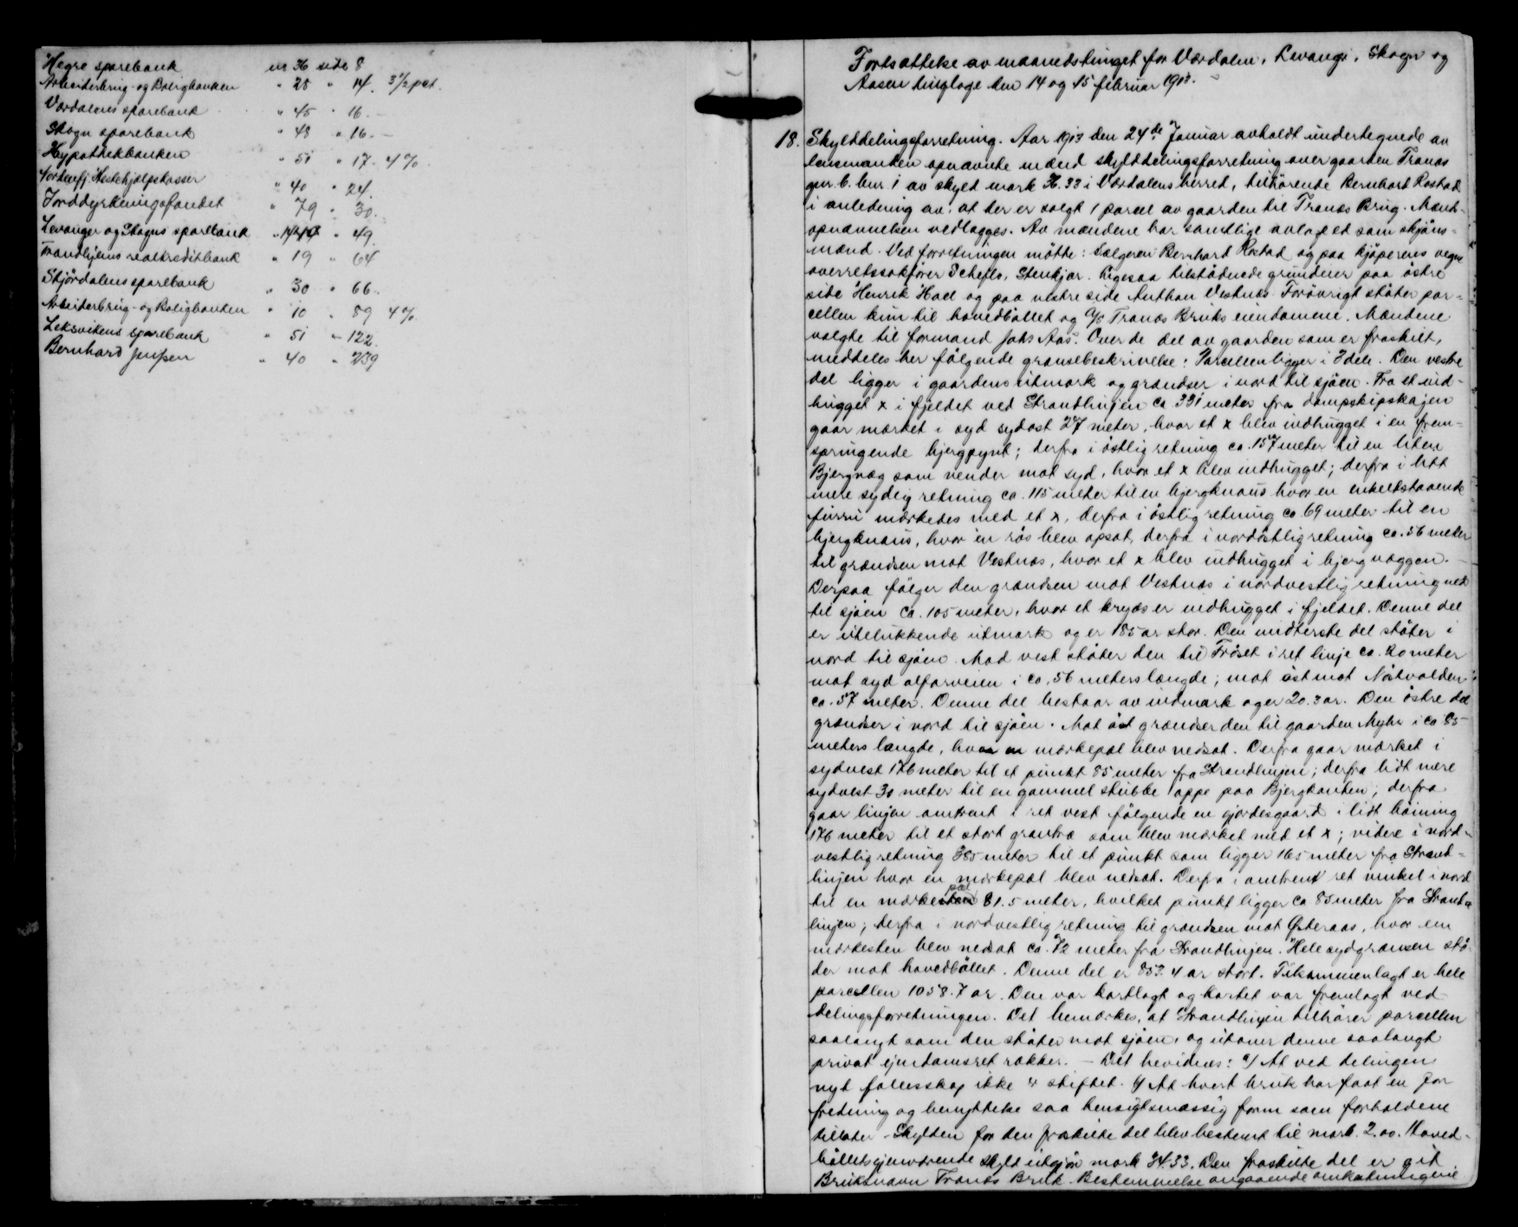 Hegre sparebank nr 36 side 8
Arbeiderbrug- og Boligbanken " 28 " 14. 3½ pct.
Værdalens sparebank " 45 " 16. –
Skogn sparebank " 48 " 16. –
Hypothekbanken " 51 " 17. 4 %
Nordenfj. Hestehjælpskasser " 40 " 24.
Jorddyrkningsfondet " 79 " 30.
Levanger og Skogns sparebank " 49.
Trondhjems realkreditbank " 19 " 64
Stjördalens sparebank " 30 " 66.
Arbeiderbrug- og Boligbanken " 10 " 89 4 %
Leksvikens sparebank " 51 " 122.
Bernhard Jenssen " 40 " 239
Fortsættelse av maanedstinget for Værdalen, Levanger, Skogn og
Aasen tinglage den 14 og 15 februar 1913.
18. Skylddelingsforretning. Aar 1913 den 24de Januar avholdt undertegnede av
lensmanden opnævnte mænd skylddelingsforretning over gaarden Tranæs
gnr. 6. bnr 1 av skyld mark 36.33 i Værdalens herred, tilhörende Bernhard Rostad
i anledning av: at der er solgt 1 parcel av gaarden til Tranæs Brug. Mænd-
opnævnelsen vedlægges. Av mændene har samtlige avlagt ed som skjöns-
mænd. Ved forretningen mötte: Sælgeren Bernhard Rostad og paa kjöperens vegne
overretssakförer Scheflo, Stenkjær. Ligesaa tilstötende grundeier paa östre
side Henrik Hoel og paa vestre side Anthon Vestnæs. Forövrigt stöter par-
cellen kun til hovedböllet og A/S Tranæs Bruks eiendomme. Mændene
valgte til formand Johs Aas. Over de del av gaarden som er fraskilt,
meddeles her fölgende grænsebeskrivelse: Parcellen ligger i 3 dele. Den vestre
del ligger i gaardens utmark og grændser i nord til sjöen. Fra et ind-
hugget x i fjeldet ved Strandlinjen ca 331 meter fra dampskipskajen
gaar mærket i syd sydost 27 meter, hvor et x blev indhugget i en frem-
springende bjergpynt; derfra i östlig retning ca. 157 meter til en liten
Bjergvæg som vender mot syd, hvor et x blev indhugget; derfra i litt
mere sydlig retning ca. 115 meter til en bjergknaus hvor en enkeltstaaende
furru mærkedes med et x, derfra i östlig retning ca 69 meter til en
bjergknaus, hvor en rös blev opsat, derfra i nordöstlig retning ca. 56 meter
til grændsen mot Vestnæs, hvor et x blev indhugget i bjergvæggen. –
Derpaa fölger den grændsen mot Vestnæs i nordvestlig retning ned
til sjöen ca. 105 meter, hvor et kryds er indhugget i fjeldet. Denne del
er utelukkende utmark og er 185 ar stor. Den midterste del stöter i
nord til sjöen. Mod vest stöter den til Fröset i ret linje ca. 20 meter
mot syd alfarveien i ca. 56 meters længde; mot öst mot Nöstvolden
ca. 57 meter. Denne del bestaar av indmark og er 20.3 ar. Den östre del
grændser i nord til sjöen. Mot öst grændser den til gaarden Myhr i ca 85
meters længde, hvor en mærkepæl blev nedsat. Derfra gaar mærket i
sydvest 176 meter til et punkt 85 meter fra Strandlinjen; derfra lidt mere
sydvest 30 meter til en gammel stubbe oppe paa Bjergkanten; derfra
gaar linjen omtrent i ret vest fölgende en gjerdesgaard i lidt böining
176 meter til et stort grantræ som blev mærket med et x; videre i nord-
vestlig retning 385 meter til et punkt som ligger 165 meter fra Strand-
linjen hvor en mærkepæl blev nedsat. Derfra i omtrent ret vinkel i nord
til en mærkepæl 81.5 meter, hvilket punkt ligger ca 85 meter fra Strand-
linjen; derfra i nordvestlig retning til grændsen mot Österaas, hvor en
mærkesten blev nedsat ca. 72 meter fra Strandlinjen. Hele sydgrænsen stö-
der mot hovedböllet. Denne del er 853.4 ar stort. Tilsammenlagt er hele
parcellen 1058.7 ar. Den var kartlagt og kartet var fremlagt ved
delingsforretningen. Det bemærkes, at Strandlinjen tilhörer parcellen
saalangt som den stöter mot sjöen, og utover denne saalangt
privat ejendomsret rækker. – Det bevidnes: a/ At ved delingen
nyt fællesskap ikke er stiftet. b/ At hvert bruk har faat en for
fredning og benyttelse saa hensigtsmæssig form som forholdene
tillater – Skylden for den fraskilte del blev bestemt til mark 2.00. Hoved-
böllets gjenværende skyld utgjör mark 34.33. Den fraskilte del er git
Bruksnavn Tranæs Bruk. Bestemmelse angaaende omkostningene